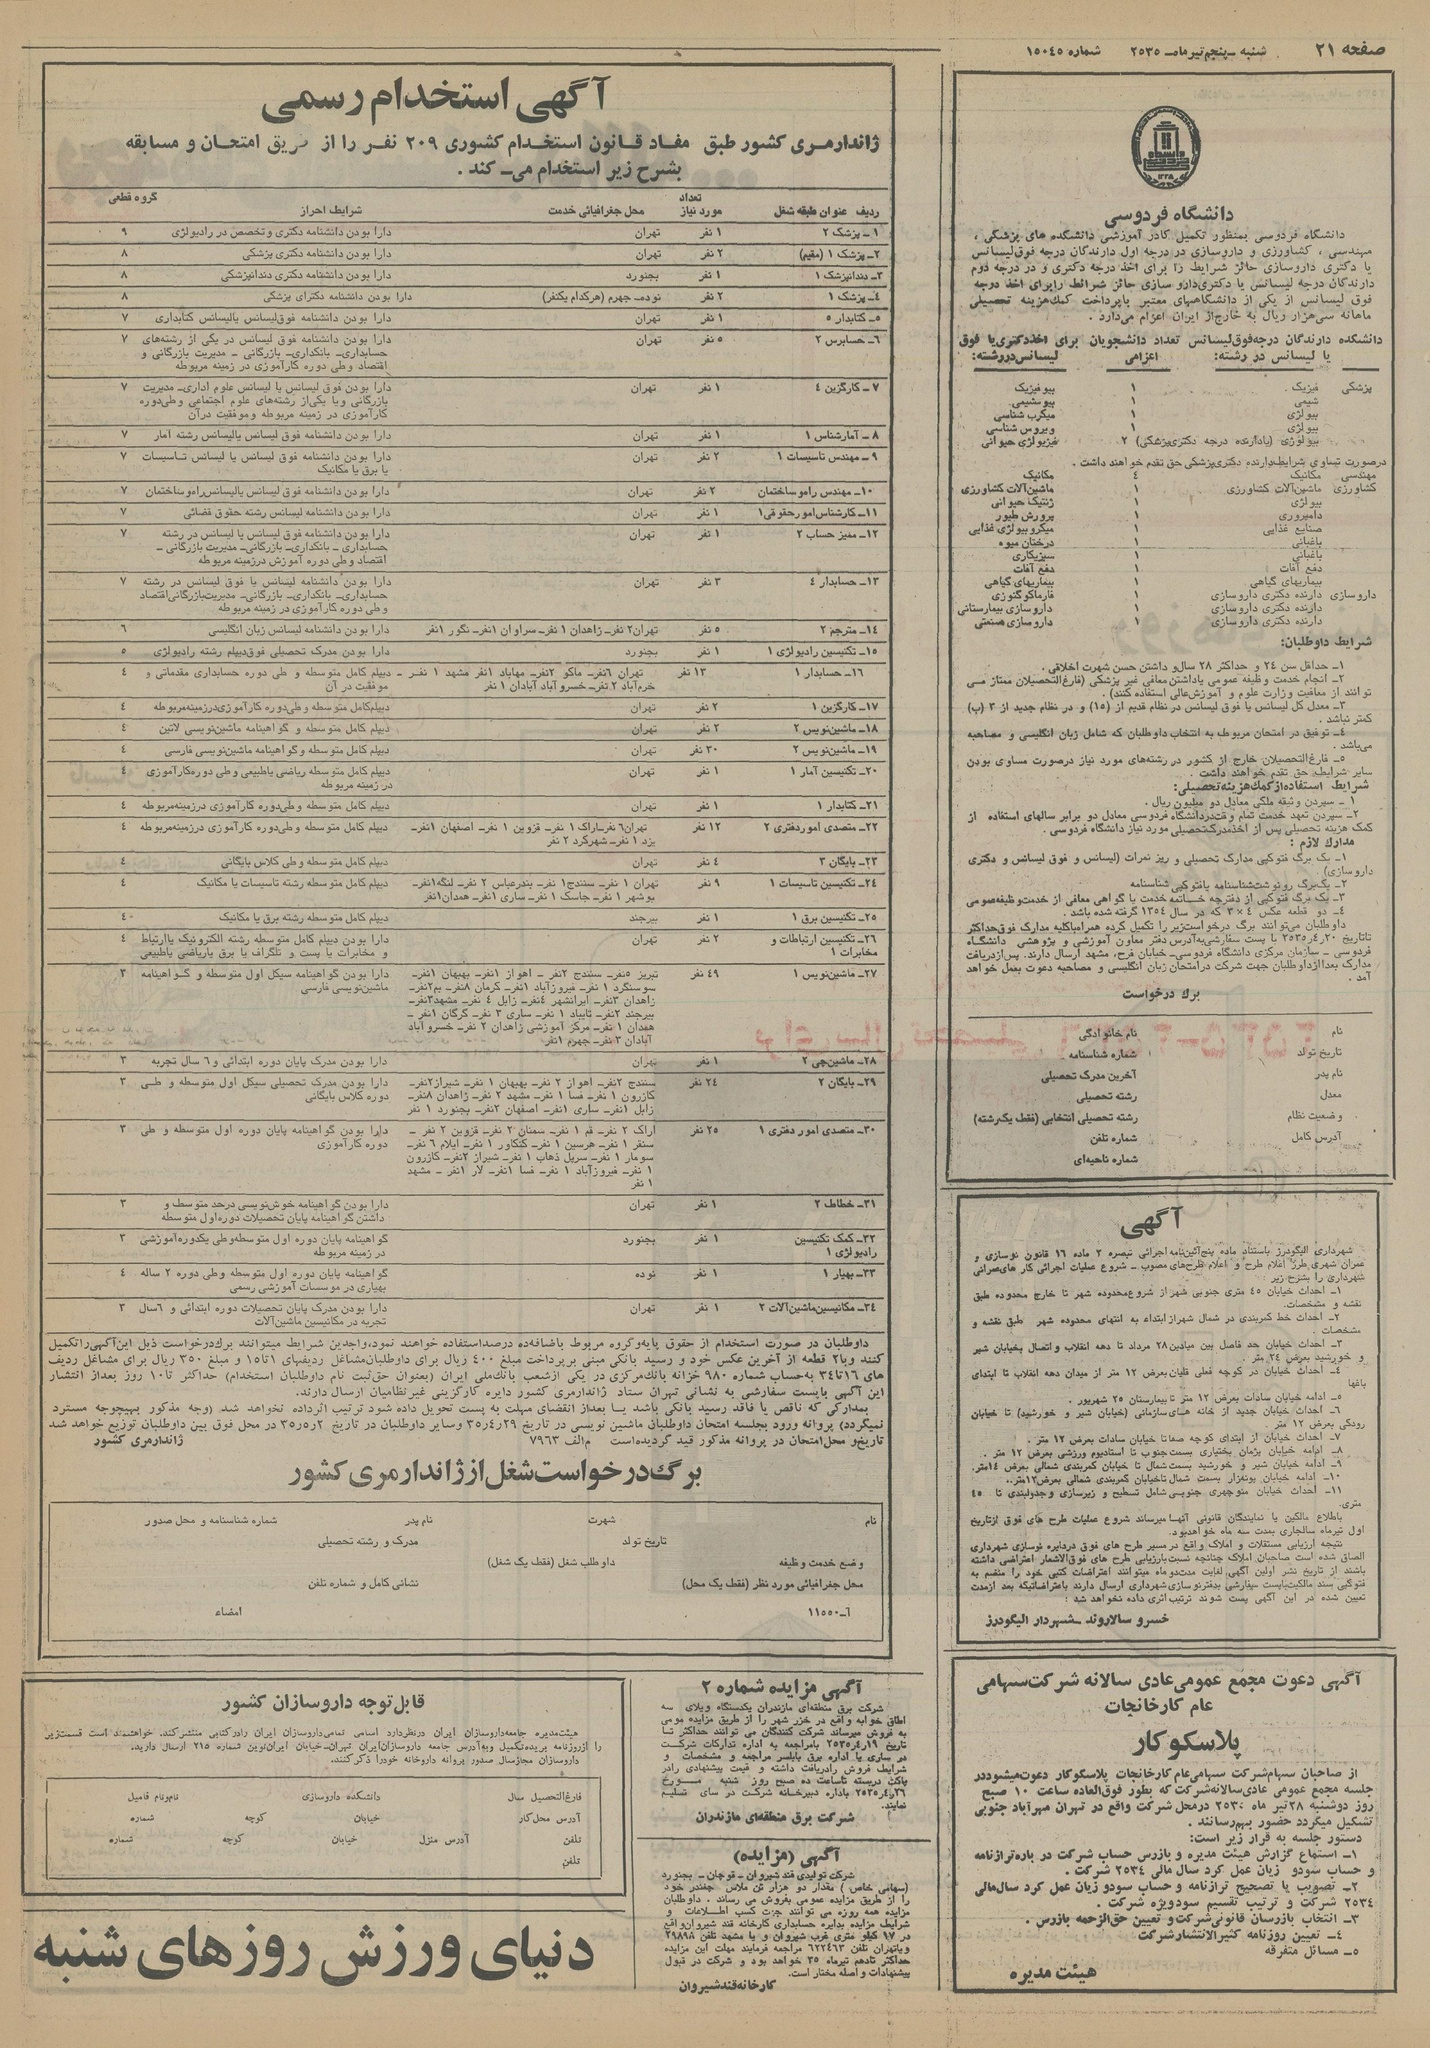 صفحه ۲۱
شنبه ـ پنجم تیرماه ـ ۲۵۳۵
شماره ۱۵۰۴۵
دانشگاه فردوسی
دانشگاه فردوسی بمنظور تکمیل کادر آموزشی دانشکده های پزشکی ،
مهندسی ، کشاورزی و داروسازی در درجه اول دارندگان درجه فوق‌لیسانس
یا دکتری داروسازی حائز شرایط را برای اخذ درجه دکتری و در درجه دوم
دارندگان درجه لیسانس یا دکتری‌دارو سازی حائز شرائط رابرای اخذ درجه
فوق لیسانس از یکی از دانشگاههای معتبر باپرداخت کمک‌هزینه تحصیلی
ماهانه سی‌هزار ریال به خارج‌از ایران اعزام می‌دارد .
دانشکده دارندگان درجه‌فوق‌لیسانس تعداد دانشجویان برای اخذدکتری‌یا فوق
یا لیسانس در رشته: اعزامی لیسانس‌دررشته:
پزشکی فیزیک ۱ بیوفیزیک
شیمی ۱ بیوشیمی
بیولژی ۱ میکرب شناسی
بیولژی ۱ ویروس شناسی
بیولوژی (یادارنده درجه دکتری‌پزشکی) ۲ فیزیولژی حیوانی
درصورت تساوی شرایط‌دارنده دکتری‌پزشکی حق تقدم خواهند داشت .
مهندسی مکانیک ۴ مکانیک
کشاورزی ماشین‌آلات کشاورزی ۱ ماشین‌آلات کشاورزی
بیولژی ۱ ژنتیک حیوانی
دامپروری ۱ پرورش طیور
صنایع غذایی ۱ میکروبیولژی غذایی
باغبانی ۱ درختان میوه
باغبانی ۱ سبزیکاری
دفع آفات ۱ دفع آفات
بیماریهای گیاهی ۱ بیماریهای گیاهی
داروسازی دارنده دکتری داروسازی ۱ فارماکوگنوزی
دارنده دکتری داروسازی ۱ داروسازی بیمارستانی
دارنده دکتری داروسازی ۱ داروسازی صنعتی
شرایط داوطلبان:
۱ـ حداقل سن ۲۴ و حداکثر ۲۸ سال‌و داشتن حسن شهرت اخلاقی .
۲ـ انجام خدمت وظیفه عمومی یاداشتن معافی غیر پزشکی (فارغ‌التحصیلان ممتاز مـی
توانند از معافیت وزارت علوم و آموزش‌عالی استفاده کنند) .
۳ـ معدل کل لیسانس یا فوق لیسانس در نظام قدیم از (۱۵) و در نظام جدید از ۳ (ب)
کمتر نباشد .
۴ـ توفیق در امتحان مربوط به انتخاب داوطلبان که شامل زبان انگلیسی و مصاحبه
می‌باشد .
۵ـ فارغ‌التحصیلان خارج از کشور در رشته‌های مورد نیاز درصورت مساوی بودن
سایر شرایط، حق تقدم خواهند داشت .
شرایط استفاده‌ازکمک‌هزینه‌تحصیلی:
۱ ـ سپردن وثیقه ملکی معادل دو میلیون ریال .
۲ـ سپردن تعهد خدمت تمام وقت‌دردانشگاه فردوسی معادل دو برابر سالهای استفاده از
کمک هزینه تحصیلی پس از اخذمدرک‌تحصیلی مورد نیاز دانشگاه فردوسی .
مدارک لازم :
۱ـ یک برگ فتوکپی مدارک تحصیلی و ریز نمرات (لیسانس و فوق لیسانس و دکتری
داروسازی)
۲ـ یک‌برگ رونوشت‌شناسنامه یافتوکپی شناسنامه
۳ـ یک برگ فتوکپی از دفترچه خـاتمه خدمت یا گواهی معافی از خدمت‌وظیفه‌عمومی
۴ـ دو قطعه عکس ۴×۳ که در سال ۱۳۵۴ گرفته شده باشد .
داوطلبان می‌توانند برگ درخواست‌زیر را تکمیل کرده همراه‌باکلیه مدارک فوق‌حداکثر
تاتاریخ ۲۰ر۴ر۲۵۳۵ با پست سفارشی‌به‌آدرس دفتر معاون آموزشی و پژوهشی دانشگاه
فردوسی ـ سازمان مرکزی دانشگاه فردوسی‌ـ خیابان فرح، مشهد ارسال دارند. پس‌ازدریافت
مدارک بعدااز‌داوطلبان جهت شرکت درامتحان زبان انگلیسی و مصاحبه دعوت بعمل خواهد
آمد .
برگ درخواست
نام نام خانوادگی
تاریخ تولد شماره شناسنامه
نام پدر آخرین مدرک تحصیلی
معدل رشته تحصیلی
وضعیت نظام رشته تحصیلی انتخابی (فقط یک‌رشته)
آدرس کامل شماره تلفن
شماره ناحیه‌ای
آگهی
شهرداری الیگودرز باستناد ماده پنج‌آئین‌نامه اجرائی تبصره ۲ ماده ۱۶ قانون نوسازی و
عمران شهری طرز اعلام طرح و اعلام طرح‌های مصوب ـ شروع عملیات اجرائی کارهای‌عمرانی
شهرداری را بشرح زیر :
۱ـ احداث خیابان ۴۵ متری جنوبی شهر از شروع‌محدوده شهر تا خارج محدوده طبق
نقشه و مشخصات.
۲ـ احداث خط کمربندی در شمال شهراز ابتداء به انتهای محدوده شهر طبق نقشه و
مشخصات .
۳ـ احداث خیابان حد فاصل بین میادین ۲۸ مرداد تا دهه انقلاب و اتصال بخیابان شیر
و خورشید بعرض ۲۴ متر .
۴ـ احداث خیابان در کوچه فعلی قلیان بعرض ۱۲ متر از میدان دهه انقلاب تا ابتدای
باغها
۵ـ ادامه خیابان سادات بعرض ۱۲ متر تا بیمارستان ۲۵ شهریور .
۶ـ احداث خیابان جدید از خانه های سازمانی (خیابان شیر و خورشید) تا خیابان
رودکی بعرض ۱۲ متر .
۷ـ احداث خیابان از ابتدای کوچه صفا تا خیابان سادات بعرض ۱۲ متر .
۸ـ ادامه خیابان پژمان بختیاری بسمت جنوب تا استادیوم ورزشی بعرض ۱۲ متر .
۹ـ ادامه خیابان شیر و خورشید بسمت شمال تا خیابان کمربندی شمالی بعرض ۱۴متر.
۱۰ـ ادامه خیابان پونه‌زار بسمت شمال تاخیابان کمربندی شمالی بعرض‌۱۲متر.
۱۱ـ احداث خیابان منوچهری جنوبی شامل تسطیح و زیرسازی و جدولبندی تا ۴۵
متری.
باطلاع مالکین یا نمایندگان قانونی آنهـا میرساند شروع عملیات طرح های فوق ازتاریخ
اول تیرماه سالجاری بمدت سه ماه خواهدبود.
نتیجه ارزیابی مستقلات و املاک واقع در مسیر طرح های فوق دردایره نوسازی شهرداری
الصاق شده است صاحبان املاک چنانچه نسبت بارزیابی طرح های فوق‌الاشعار اعتراضی داشته
باشند از تاریخ نشر اولین آگهی لغایت مدت‌دوماه میتوانند اعتراضات کتبی خود را منضم به
فتوکپی سند مالکیت‌باپست سفارشی بدفترنوسازی شهرداری ارسال دارند باعتراضاتیکه بعد ازمدت
تعیین شده در این آگهی پست شوند ترتیب اثری داده نخواهد شد :
خسرو سالاروند ـ شهردار الیگودرز
آگهی دعوت مجمع عمومی‌عادی سالانه شرکت‌سهامی
عام کارخانجات
پلاسکوکار
از صاحبان سهام‌شرکت سهامی‌عام کارخانجات پلاسکوکار دعوت‌میشوددر
جلسه مجمع عمومی عادی‌سالانه‌شرکت که بطور فوق‌العاده ساعت ۱۰ صبح
روز دوشنبه ۲۸تیر ماه ۲۵۳۵ درمحل شرکت واقع در تهران مهرآباد جنوبی
تشکیل میگردد حضور بهم‌رسانند .
دستور جلسه به قرار زیر است:
۱ـ استماع گزارش هیئت مدیره و بازرس حساب شرکت در باره‌ترازنامه
و حساب سودو زیان عمل کرد سال مالی ۲۵۳۴ شرکت .
۲ـ تصویب یا تصحیح ترازنامه و حساب سودو زیان عمل کرد سال‌مالی
۲۵۳۴ شرکت و ترتیب تقسیم سودویژه شرکت .
۳ـ انتخاب بازرسان قانونی‌شرکت‌و تعیین حق‌الزحمه بازرس .
۴ـ تعیین روزنامه کثیرالانتشارشرکت
۵ـ مسائل متفرقه
هیئت مدیره
آگهی استخدام رسمی
ژاندارمری کشور طبق مفـاد قـانون استخـدام کشوری ۲۰۹ نفـر را از طریق امتحـان و مسابقه
بشرح زیر استخدام میـ کند .
ردیف عنوان طبقه شغل تعداد مورد نیاز محل جغرافیائی خدمت شرایط احراز گروه قطعی
۱ـ پزشک ۲ ۱ نفر تهران دارا بودن دانشنامه دکتری وتخصص در رادیولژی ۹
۲ـ پزشک ۱ (مقیم) ۲ نفر تهران دارا بودن دانشنامه دکتری پزشکی ۸
۳ـ دندانپزشک ۱ ۱ نفر بجنورد دارا بودن دانشنامه دکتری دندانپزشکی ۸
۴ـ پزشک ۱ ۲ نفر نوده‌ـ جهرم (هرکدام یکنفر) دارا بودن دانشنامه دکترای پزشکی ۸
۵ـ کتابدار ۵ ۱ نفر تهران دارا بودن دانشنامه فوق‌لیسانس یالیسانس کتابداری ۷
۶ـ حسابرس ۲ ۵ نفر تهران دارا بودن دانشنامه فوق لیسانس در یکی از رشته‌های ۷
حسابداری‌ـ بانکداری‌ـ بازرگانی ـ مدیریت بازرگانی و
اقتصاد وطی دوره کارآموزی در زمینه مربوطه
۷ ـ کارگزین ۴ ۱ نفر تهران دارا بودن فوق لیسانس یا لیسانس علوم اداری‌ـ مدیریت ۷
بازرگانی ویا یکی‌از رشته‌های علوم اجتماعی وطی‌دوره
کارآموزی در زمینه مربوطه وموفقیت درآن
۸ ـ آمارشناس ۱ ۱ نفر تهران دارا بودن دانشنامه فوق لیسانس یالیسانس رشته آمار ۷
۹ ـ مهندس تاسیسات ۱ ۲ نفر تهران دارا بودن دانشنامه فوق لیسانس یا لیسانس تـاسیسات ۷
یا برق یا مکانیک
۱۰ـ مهندس راه‌وساختمان ۲ نفر تهران دارا بودن دانشنامه فوق لیسانس یالیسانس‌راه‌وساختمان ۷
۱۱ـ کارشناس‌امورحقوقی۱ ۱ نفر تهران دارا بودن دانشنامه لیسانس رشته حقوق قضائی ۷
۱۲ـ ممیز حساب ۲ ۱ نفر تهران دارا بودن دانشنامه فوق لیسانس یا لیسانس در رشته ۷
حسابداری ـ بانکداری ـ بازرگانی‌ـ مدیریت بازرگانی ـ
اقتصاد وطی دوره آموزش درزمینه مربوطه
۱۳ـ حسابدار ۴ ۳ نفر تهران دارا بودن دانشنامه لیسانس یا فوق لیسانس در رشته ۷
حسابداری‌ـ بانکداری‌ـ بازرگانی‌ـ مدیریت‌بازرگانی‌اقتصاد
وطی دوره کارآموزی در زمینه مربوطه
۱۴ـ مترجم ۲ ۵ نفر تهران۲ نفرـ زاهدان ۱نفرـ سراوان ۱نفرـ نگور ۱نفر دارا بودن دانشنامه لیسانس زبان انگلیسی ۶
۱۵ـ تکنیسین رادیولژی ۱ ۱ نفر بجنورد دارا بودن مدرک تحصیلی فوق‌دیپلم رشته رادیولژی ۵
۱۶ـ حسابدار ۱ ۱۳ نفر تهران ۶نفرـ ماکو ۲نفرـ مهاباد ۱نفر مشهد ۱ نفـر ـ دیپلم کامل متوسطه و طی دوره حسابداری مقدماتی و ۴
خرم‌آباد ۲نفرـ خسروآباد آبادان ۱ نفر موفقیت در آن
۱۷ـ کارگزین ۱ ۲ نفر تهران دیپلم‌کامل متوسطه و طی‌دوره کارآموزی‌درزمینه‌مربوطه ۴
۱۸ـ ماشین‌نویس ۲ ۲ نفر تهران دیپلم کامل متوسطه و گواهینامه ماشین‌نویسی لاتین ۴
۱۹ـ ماشین‌نویس ۲ ۳۰ نفر تهران دیپلم کامل متوسطه وگواهینامه ماشین‌نویسی فارسی ۴
۲۰ـ تکنیسین آمار ۱ ۱ نفر تهران دیپلم کامل متوسطه ریاضی یاطبیعی وطی دوره‌کارآموزی ۴
در زمینه مربوطه
۲۱ـ کتابدار ۱ ۱ نفر تهران دیپلم کامل متوسطه وطی‌دوره کارآموزی درزمینه‌مربوطه ۴
۲۲ـ متصدی اموردفتری ۲ ۱۲ نفر تهران۶ نفرـاراک ۱ نفرـ قزوین ۱ نفرـ اصفهان ۱نفرـ دیپلم کامل متوسطه و طی‌دوره کارآموزی درزمینه‌مربوطه ۴
یزد ۱ نفرـ شهرکرد ۲ نفر
۲۳ـ بایگان ۳ ۴ نفر تهران دیپلم کامل متوسطه وطی کلاس بایگانی ۴
۲۴ـ تکنیسین تاسیسات ۱ ۹ نفر تهران ۱ نفرـ سنندج۱ نفرـ بندرعباس ۲ نفرـ لنگه۱نفرـ دیپلم کامل متوسطه رشته تاسیسات یا مکانیک ۴
بوشهر ۱ نفرـ جاسک ۱ نفرـ ساری ۱نفرـ همدان۱نفر
۲۵ـ تکنیسین برق ۱ ۱ نفر بیرجند دیپلم کامل متوسطه رشته برق یا مکانیک ۴
۲۶ـ تکنیسین ارتباطات و ۲ نفر تهران دارا بودن دیپلم کامل متوسطه رشته الکترونیک یاارتباط ۴
مخابرات ۱ و مخابرات یا پست و تلگراف یا برق یاریاضی یاطبیعی
۲۷ـ ماشین‌نویس ۱ ۴۹ نفر تبریز ۵نفرـ سنندج ۲نفر ـ اهواز ۱نفرـ بهبهان ۱نفرـ دارا بودن گواهینامه سیکل اول متوسطه و گـواهینامه ۳
سوسنگرد ۱ نفرـ فیروزآباد ۱نفرـ کرمان ۸نفرـ بم۲نفرـ ماشین‌نویسی فارسی
زاهدان ۳نفرـ ایرانشهر ۴نفرـ زابل ۴ نفرـ مشهد۳نفرـ
بیرجند ۲نفرـ تایباد ۱ نفرـ ساری ۳ نفرـ گرگان ۱نفر ـ
همدان ۱نفرـ مرکز آموزشی زاهدان ۲ نفرـ خسروآباد
آبادان ۳ نفرـ جهرم ۱نفر
۲۸ـ ماشین‌چی ۲ ۱ نفر تهران دارا بودن مدرک پایان دوره ابتدائی و۶ سال تجربه ۳
۲۹ـ بایگان ۲ ۲۴ نفر سنندج ۲نفرـ اهواز ۲ نفرـ بهبهان ۱ نفرـ شیراز۲نفرـ دارا بودن مدرک تحصیلی سیکل اول متوسطه و طـی ۳
کازرون ۱ نفرـ فسا ۱ نفرـ مشهد ۲ نفرـ زاهدان ۸نفرـ دوره کلاس بایگانی
زابل ۱نفرـ ساری ۱نفرـ اصفهان ۲نفرـ بجنورد ۱ نفر
۳۰ـ متصدی اموردفتری ۱ ۲۵ نفر اراک ۲ نفرـ قم ۱ نفرـ سمنان ۲ نفرـ قزوین ۲ نفر ـ دارا بودن گواهینامه پایان دوره اول متوسطه و طی ۳
سنقر ۱ نفرـ هرسین ۱ نفرـ کنگاور ۱ نفرـ ایلام ۶ نفرـ دوره کارآموزی
سومار ۱ نفرـ سرپل ذهاب ۱ نفرـ شیراز ۲نفرـ کازرون
۱ نفرـ فیروزآباد ۱ نفرـ فسا ۱نفرـ لار ۱نفر ـ مشهد
۱ نفر
۳۱ـ خطاط ۲ ۱ نفر تهران دارا بودن گواهینامه خوش‌نویسی درحد متوسط و ۳
داشتن گواهینامه پایان تحصیلات دوره‌اول متوسطه
۳۲ـ کمک تکنیسین ۱ نفر بجنورد گواهینامه پایان دوره اول متوسطه‌وطی یکدوره‌آموزشی ۳
رادیولژی ۱ در زمینه مربوطه
۳۳ـ بهیار ۱ ۱ نفر نوده گواهینامه پایان دوره اول متوسطه وطی دوره ۲ ساله ۴
بهیاری در موسسات آموزشی رسمی
۳۴ـ مکانیسین‌ماشین‌آلات ۲ ۱ نفر تهران دارا بودن مدرک پایان تحصیلات دوره ابتدائی و ۶سال ۳
تجربه در مکانیسین ماشین‌آلات
داوطلبان در صورت استخدام از حقوق پایه‌گروه مربوط بااضافه‌ده درصداستفاده خواهند نمود،واجدین شرایط میتوانند برک‌درخواست ذیل این‌آگهی‌راتکمیل
کنند وبا۲ قطعه از آخرین عکس خود و رسید بانکی مبنی برپرداخت مبلغ ۴۰۰ ریال برای داوطلبان‌مشاغل ردیفهای ۱تا۱۵ و مبلغ ۳۵۰ ریال برای مشاغل ردیف
های ۱۶تا۳۴ به‌حساب شماره ۹۸۰ خزانه بانک‌مرکزی در یکی ازشعب بانک‌ملی ایران (بعنوان حق‌ثبت نام داوطلبان استخدام) حداکثر تا۱۰ روز بعداز انتشار
این آگهی باپست سفارشی به نشانی تهران ستاد ژاندارمری کشور دایره کارگزینی غیرنظامیان ارسال دارند.
بمدارکی که ناقص یا فاقد رسید بانکی باشد یـا بعداز انقضای مهلت به پست تحویل داده شود ترتیب اثرداده نخواهد شد، (وجه مذکور بهیچوجه مسترد
نمیگردد) پروانه ورود بجلسه امتحان داوطلبان ماشین نویسی در تاریخ ۲۹ر۴ر۳۵ وسایر داوطلبان در تاریخ ۲ر۵ر۳۵ در محل فوق بین داوطلبان توزیع خواهد شد
تاریخ‌و محل‌امتحان در پروانه مذکور قید گردیده‌است م‌الف ۷۹۶۳ ژاندارمری کشور
برگ‌درخواست‌شغل‌از‌ژاندارمری‌کشور
نام شهرت نام پدر شماره شناسنامه و محل صدور
تاریخ تولد مدرک و رشته تحصیلی
وضع خدمت وظیفه داوطلب شغل (فقط یک شغل)
محل جغرافیائی مورد نظر (فقط یک محل) نشانی کامل و شماره تلفن
۶ـ۱۱۵۵۰ امضاء
آگهی مزایده شماره ۲
شرکت برق منطقه‌ای مازندران یکدستگاه ویلای سه
اطاق خوابه واقع در خزر شهر را از طریق مزایده عمومی
به فروش میرساند شرکت کنندگان می توانند حداکثر تـا
تاریخ ۱۹ر۴ر۲۵۳۵ بامراجعه به اداره تدارکات شرکت
در ساری یا اداره برق بابلسر مراجعه و مشخصات و
شرایط فروش رادریافت داشته و قیمت پیشنهادی رادر
پاکت دربسته تاساعت ده صبح روز شنبه مـــورخ
۲۶ر۴ر۲۵۳۵ باداره دبیرخانه شرکت در ساری تسلیم
نمایند.
شرکت برق منطقه‌ای مازندران
آگهی (مزایده)
شرکت تولیدی قند شیروان ـ قوچان ـ بجنورد
(سهامی خاص) مقدار دو هزار تن ملاس چغندر خود
را از طریق مزایده عمومی بفروش می رساند ، داوطلبان
مزایده همه روزه می توانند جزت کسب اطلاعات و
شرایط مزایده بدایره حسابداری کارخانه قند شیروان‌واقع
در ۱۷ کیلو متری غرب شیروان و یا مشهد تلفن ۲۹۸۹۸
ویاتهران تلفن ۶۲۲۴۶۳ مراجعه فرمایند مهلت این مزایده
حداکثر تادهم تیرماه ۳۵ خواهد بود و شرکت در قبول
پیشنهادات واصله مختار است.
کارخانه‌قندشیروان
قابل‌توجه داروسازان کشور
هیئت‌مدیره جامعه‌داروسازان ایران درنظردارد اسامی تمامی‌داروسازان ایران رادرکتابی منتشرکند، خواهشمند است قسمت‌زیر
را ازروزنامه بریده‌تکمیل وبه‌آدرس جامعه داروسازان‌ایران تهران‌ـ خیابان ایران‌نوین شماره ۲۱۵ ارسال دارید.
داروسازان مجازسال صدور پروانه داروخانه خودرا ذکرکنند.
فارغ‌التحصیل سال دانشکده داروسازی نام‌ونام فامیل
آدرس محل‌کار خیابان کوچه شماره
تلفن آدرس منزل خیابان کوچه شماره
تلفن
دنیای ورزش روزهای شنبه